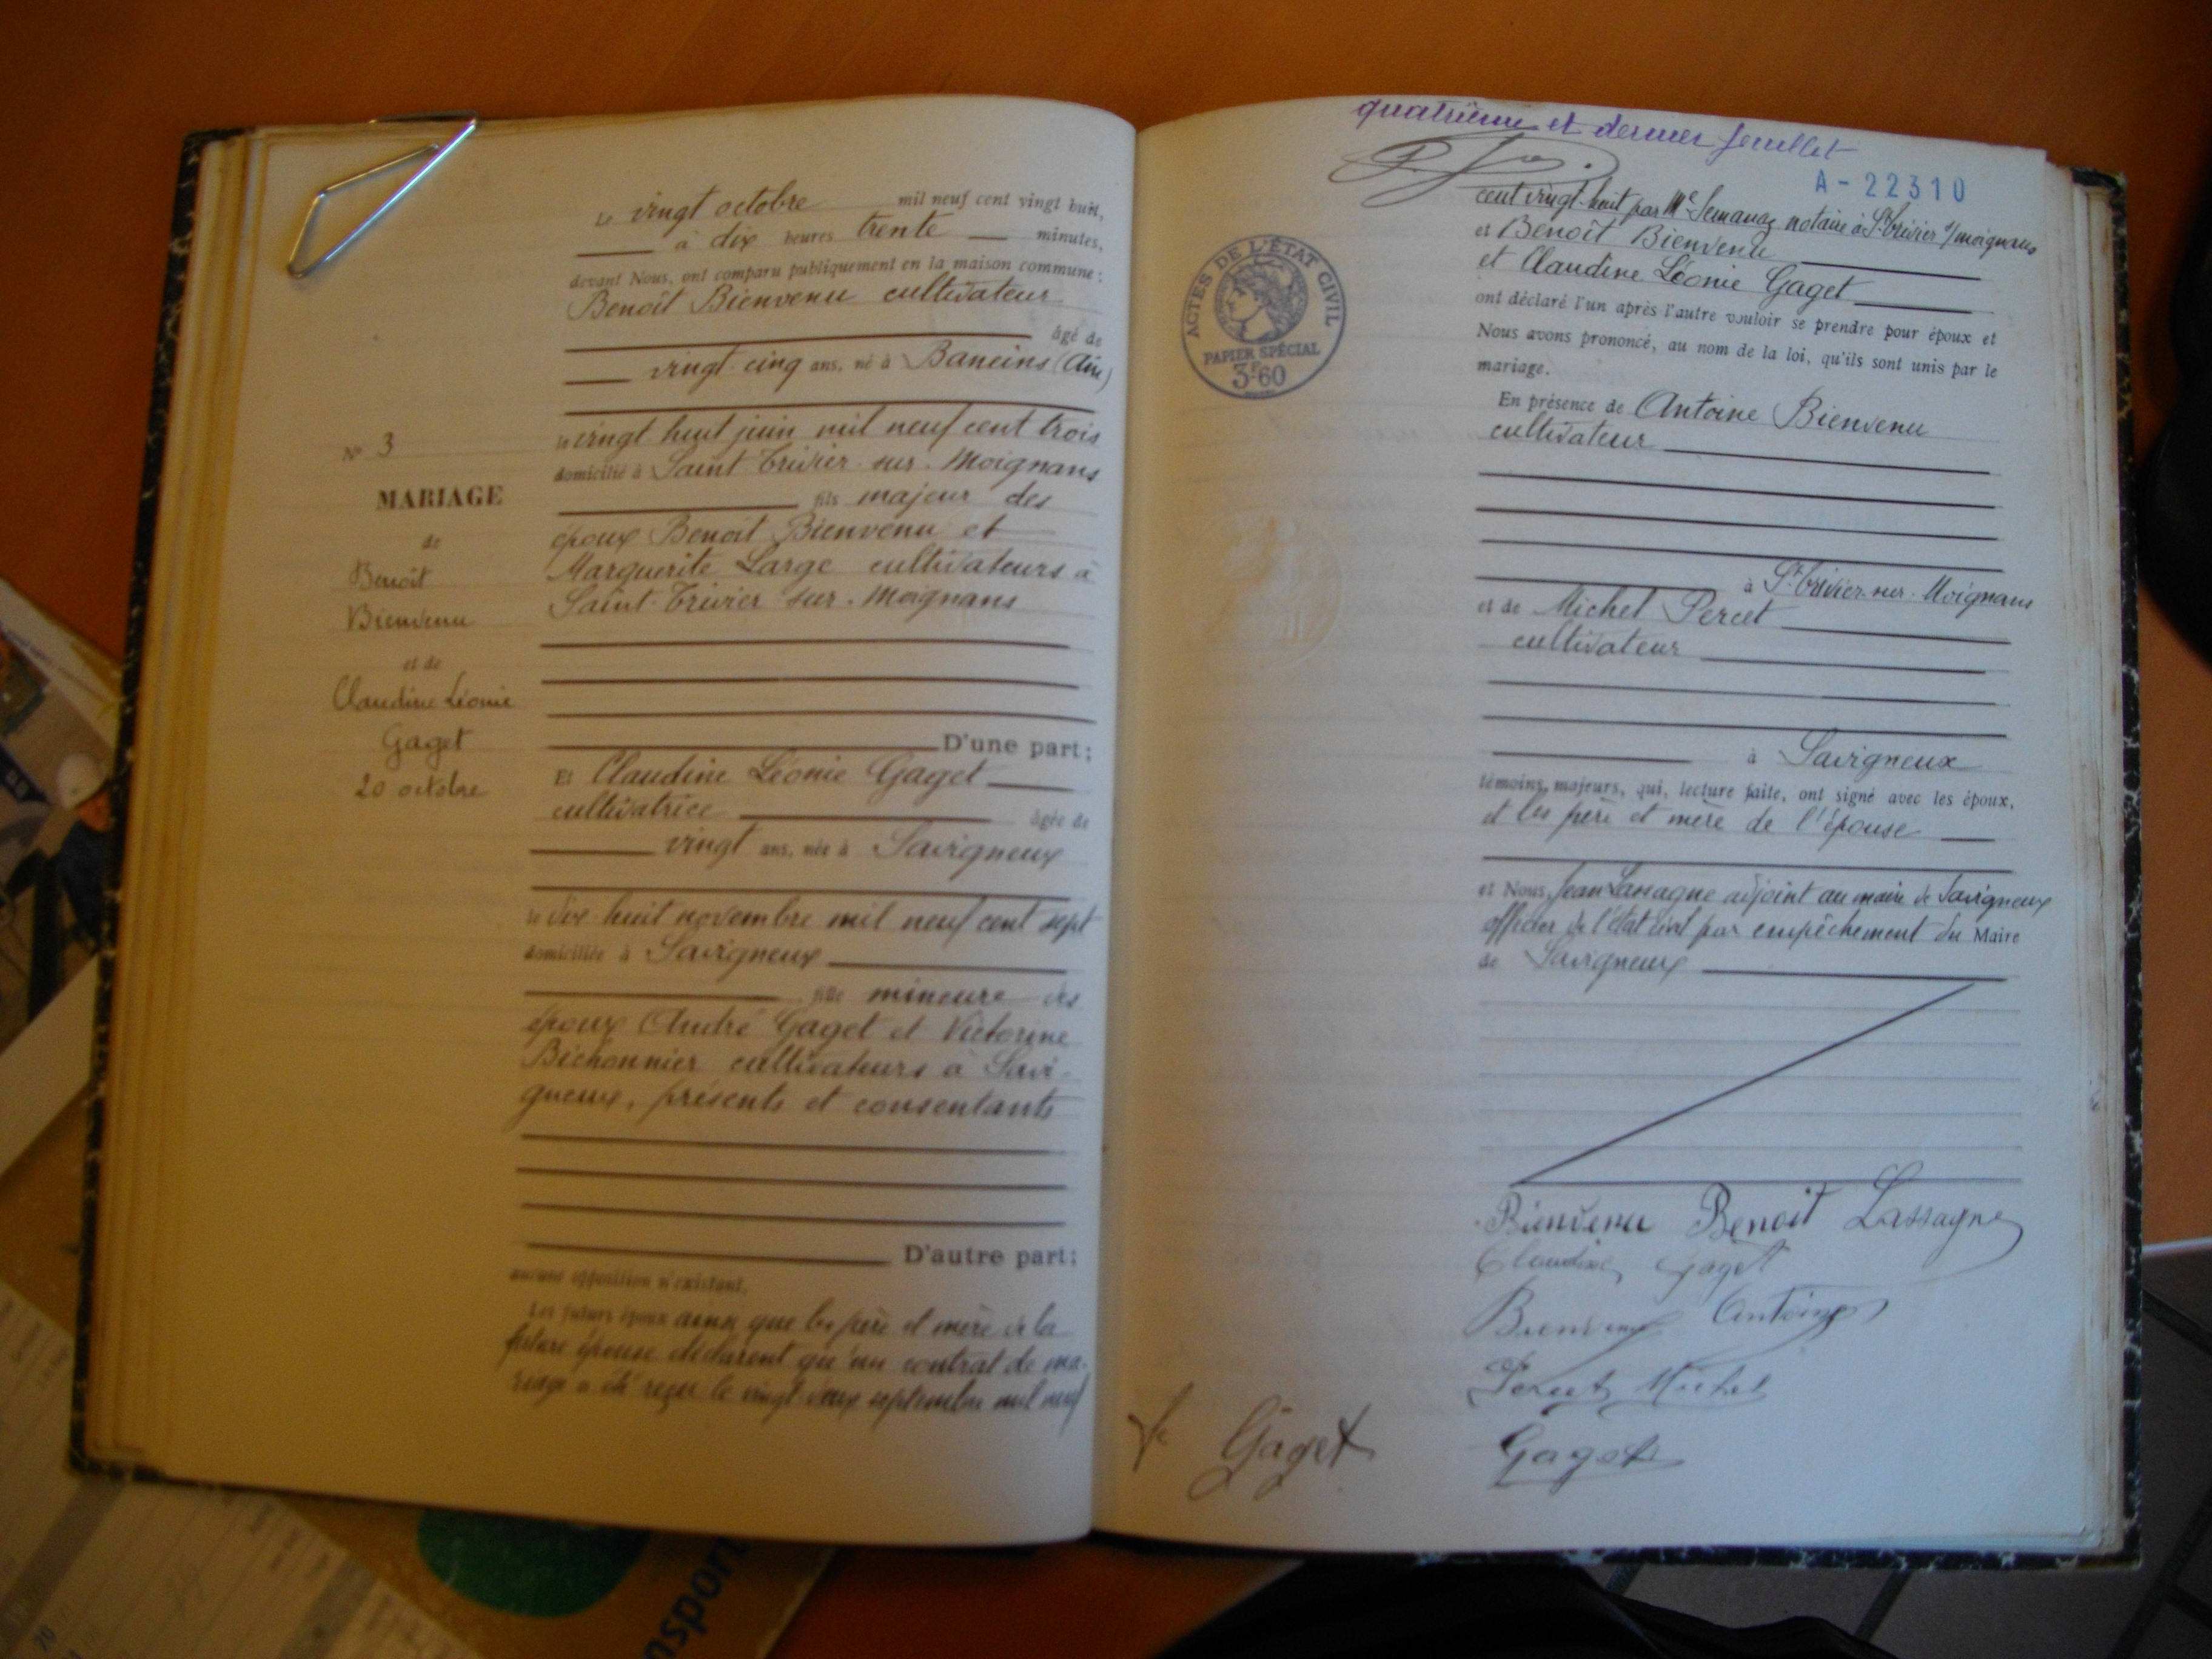 Le vingt octobre mil neuf cent vingt huit,
à dix heures trente minutes,
devant Nous, ont comparu publiquement en la maison commune :
Benoît Bienvenu cultivateur
âgé de
vingt-cinq ans, né à Baneins (Ain)
le vingt huit juin mil neuf cent trois
domicilié à Saint-Trivier-sur-Moignans
fils majeur des
époux Benoit Bienvenu et
Marguerite Large cultivateurs à
Saint-Trivier-sur-Moignans
D'une part ;
Et Claudine Léonie Gaget
cultivatrice âgée de
vingt ans, née à Savigneux
le dix-huit novembre mil neuf cent sept
domiciliée à Savigneux
fille mineure des
époux André Gaget et Victorine
Bichonnier cultivateurs à Savi-
gneux, présents et consentants
D'autre part ;
aucune opposition n'existant.
Les futurs époux ainsi que les père et mère de la
future épouse déclarent qu'un contrat de ma-
riage a été reçu le vingt deux septembre mil neuf
N° 3
MARIAGE
de
Benoît
Bienvenu
et de
Claudine Léonie
Gaget
20 octobre
quatrième et dernier feuillet
A-22310
ACTES DE L'ÉTAT CIVIL
PAPIER SPÉCIAL
3F60
cent vingt-huit par Me notaire à St-Trivier s/moignans
et Benoît Bienvenu
et Claudine Léonie Gaget
ont déclaré l'un après l'autre vouloir se prendre pour époux et
Nous avons prononcé, au nom de la loi, qu'ils sont unis par le
mariage.
En présence de Antoine Bienvenu
cultivateur
à St-Trivier-sur-Moignans
et de Michel Percet
cultivateur
à Savigneux
témoins majeurs, qui, lecture faite, ont signé avec les époux,
et les père et mère de l'épouse
et Nous, Jean Lassagne adjoint au maire de Savigneux
officier de l'état civil par empêchement du Maire
de Savigneux
Bienvenu Benoit Lassagne
Claudine Gaget
Bienvenu Antoine
Percet Michel
fe Gaget Gaget